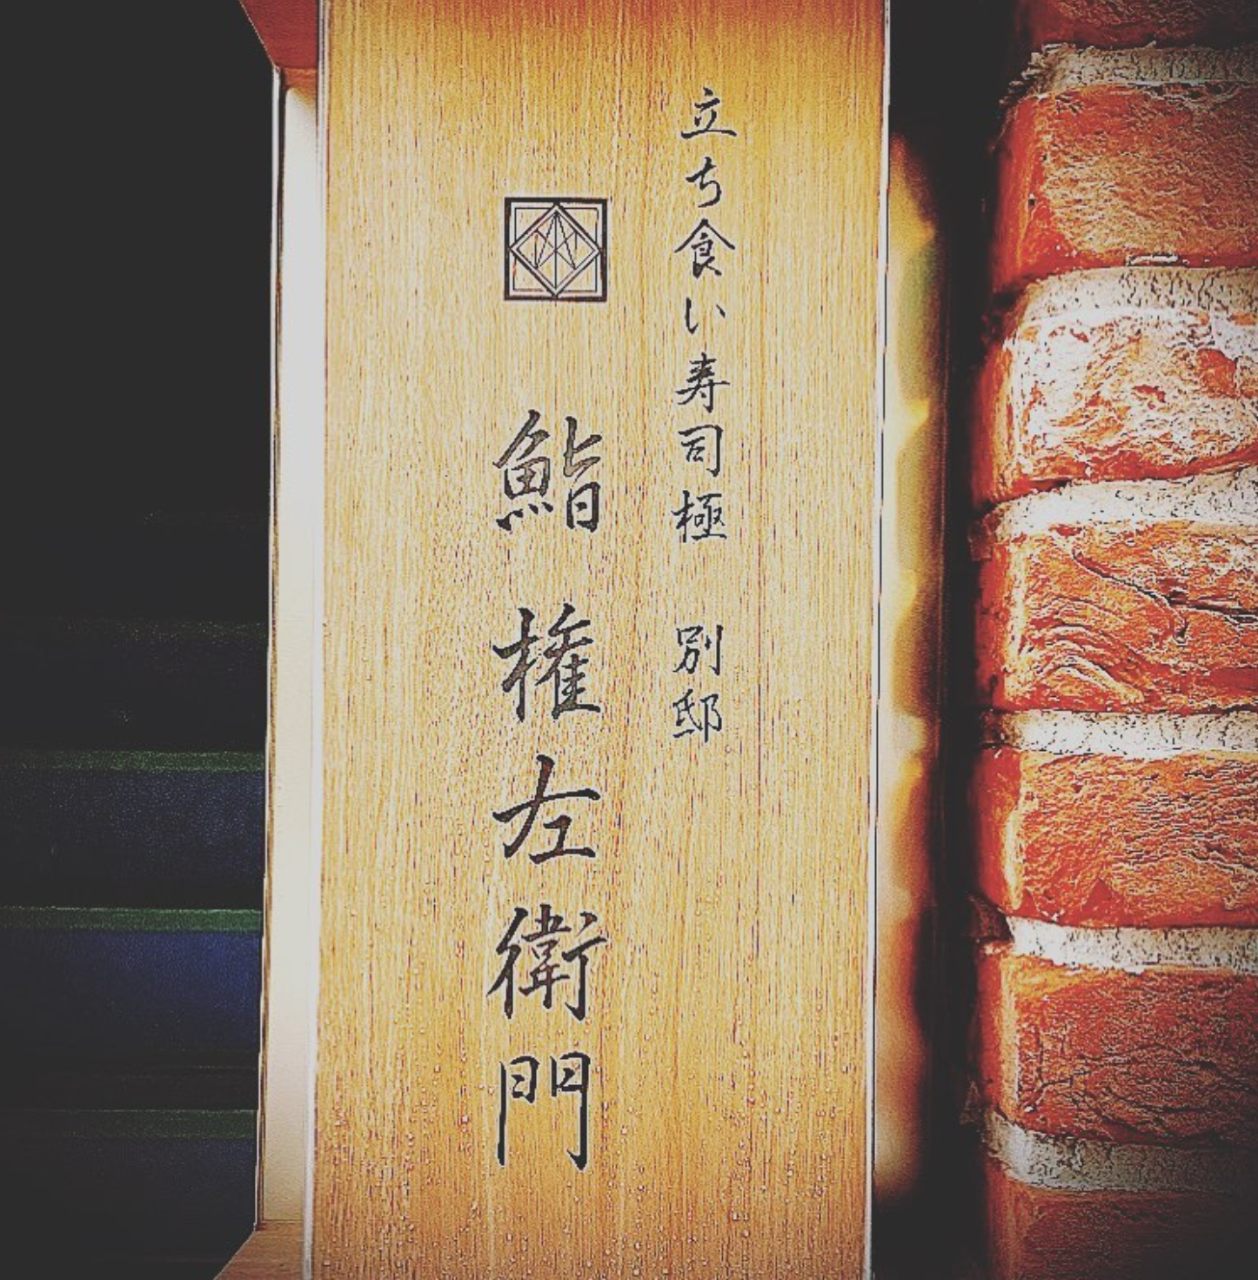 立ち食い寿司極 別邸
鮨 権左衛門